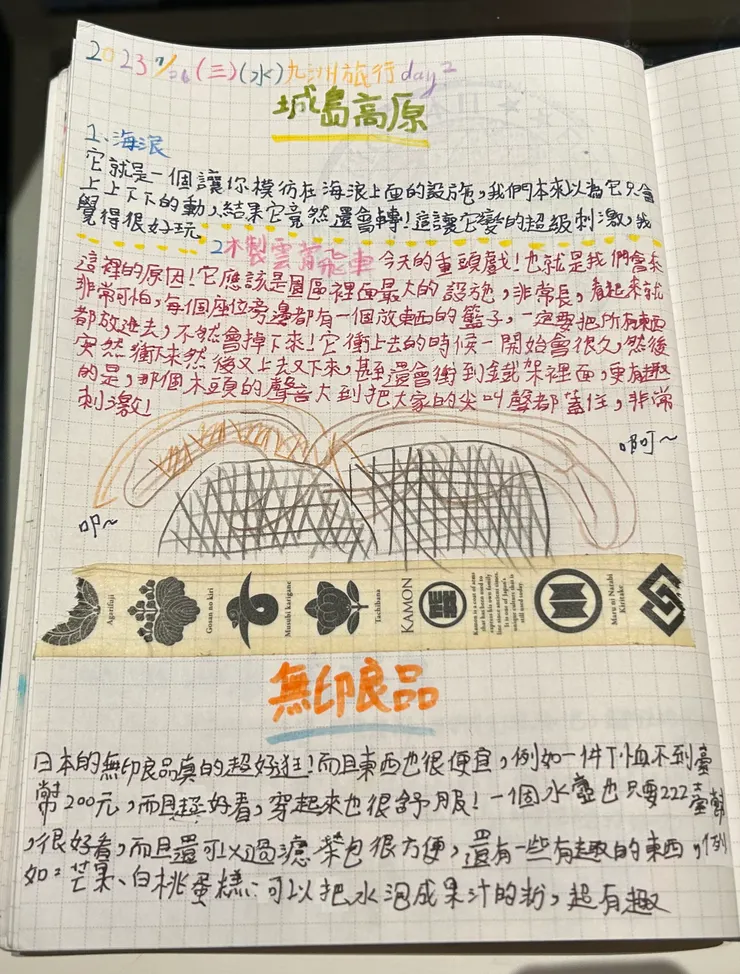 2023 7/26 (三)(水)九洲旅行day 2
城島高原
1、海浪
它就是一個讓你模彷在海浪上面的設施,我們本來以為它只會
上上下下的動,結果它竟然還會轉!這讓它變的超級刺激,我
覺得很好玩
2木製雲霄飛車 今天的重頭戲!也就是我們會來
這裡的原因!它應該是園區裡面最大的設施,非常長,看起來就
非常可怕,每個座位旁邊都有一個放東西的籃子,一定要把所有東西
都放進去,不然會掉下來!它衝上去的時候一開始會很久,然後
突然衝下來然後又上去又下來,甚至還會衝到鐵架裡面,更有趣
的是,那個木頭的聲音大到把大家的尖叫聲都蓋住,非常
刺激!
啊~
Agarifuji
Gosan no kiri
Musubi karigane
Tachibana
KAMON
Kamon is a coat of arms
that has been used to
represent his own family
line since ancient times.
It is one of Japan's
unique culture that is
still used today.
Maru ni Narabi
Kiritake
無印良品
日本的無印良品真的超好逛!而且東西也很便宜,例如一件T恤不到臺
幣200元,而且超好看,穿起來也很舒服!一個水壺也只要222臺幣
,很好看,而且還可以過濾茶包很方便,還有一些有趣的東西,例
如:芒果、白桃蛋糕;可以把水泡成果汁的粉,超有趣